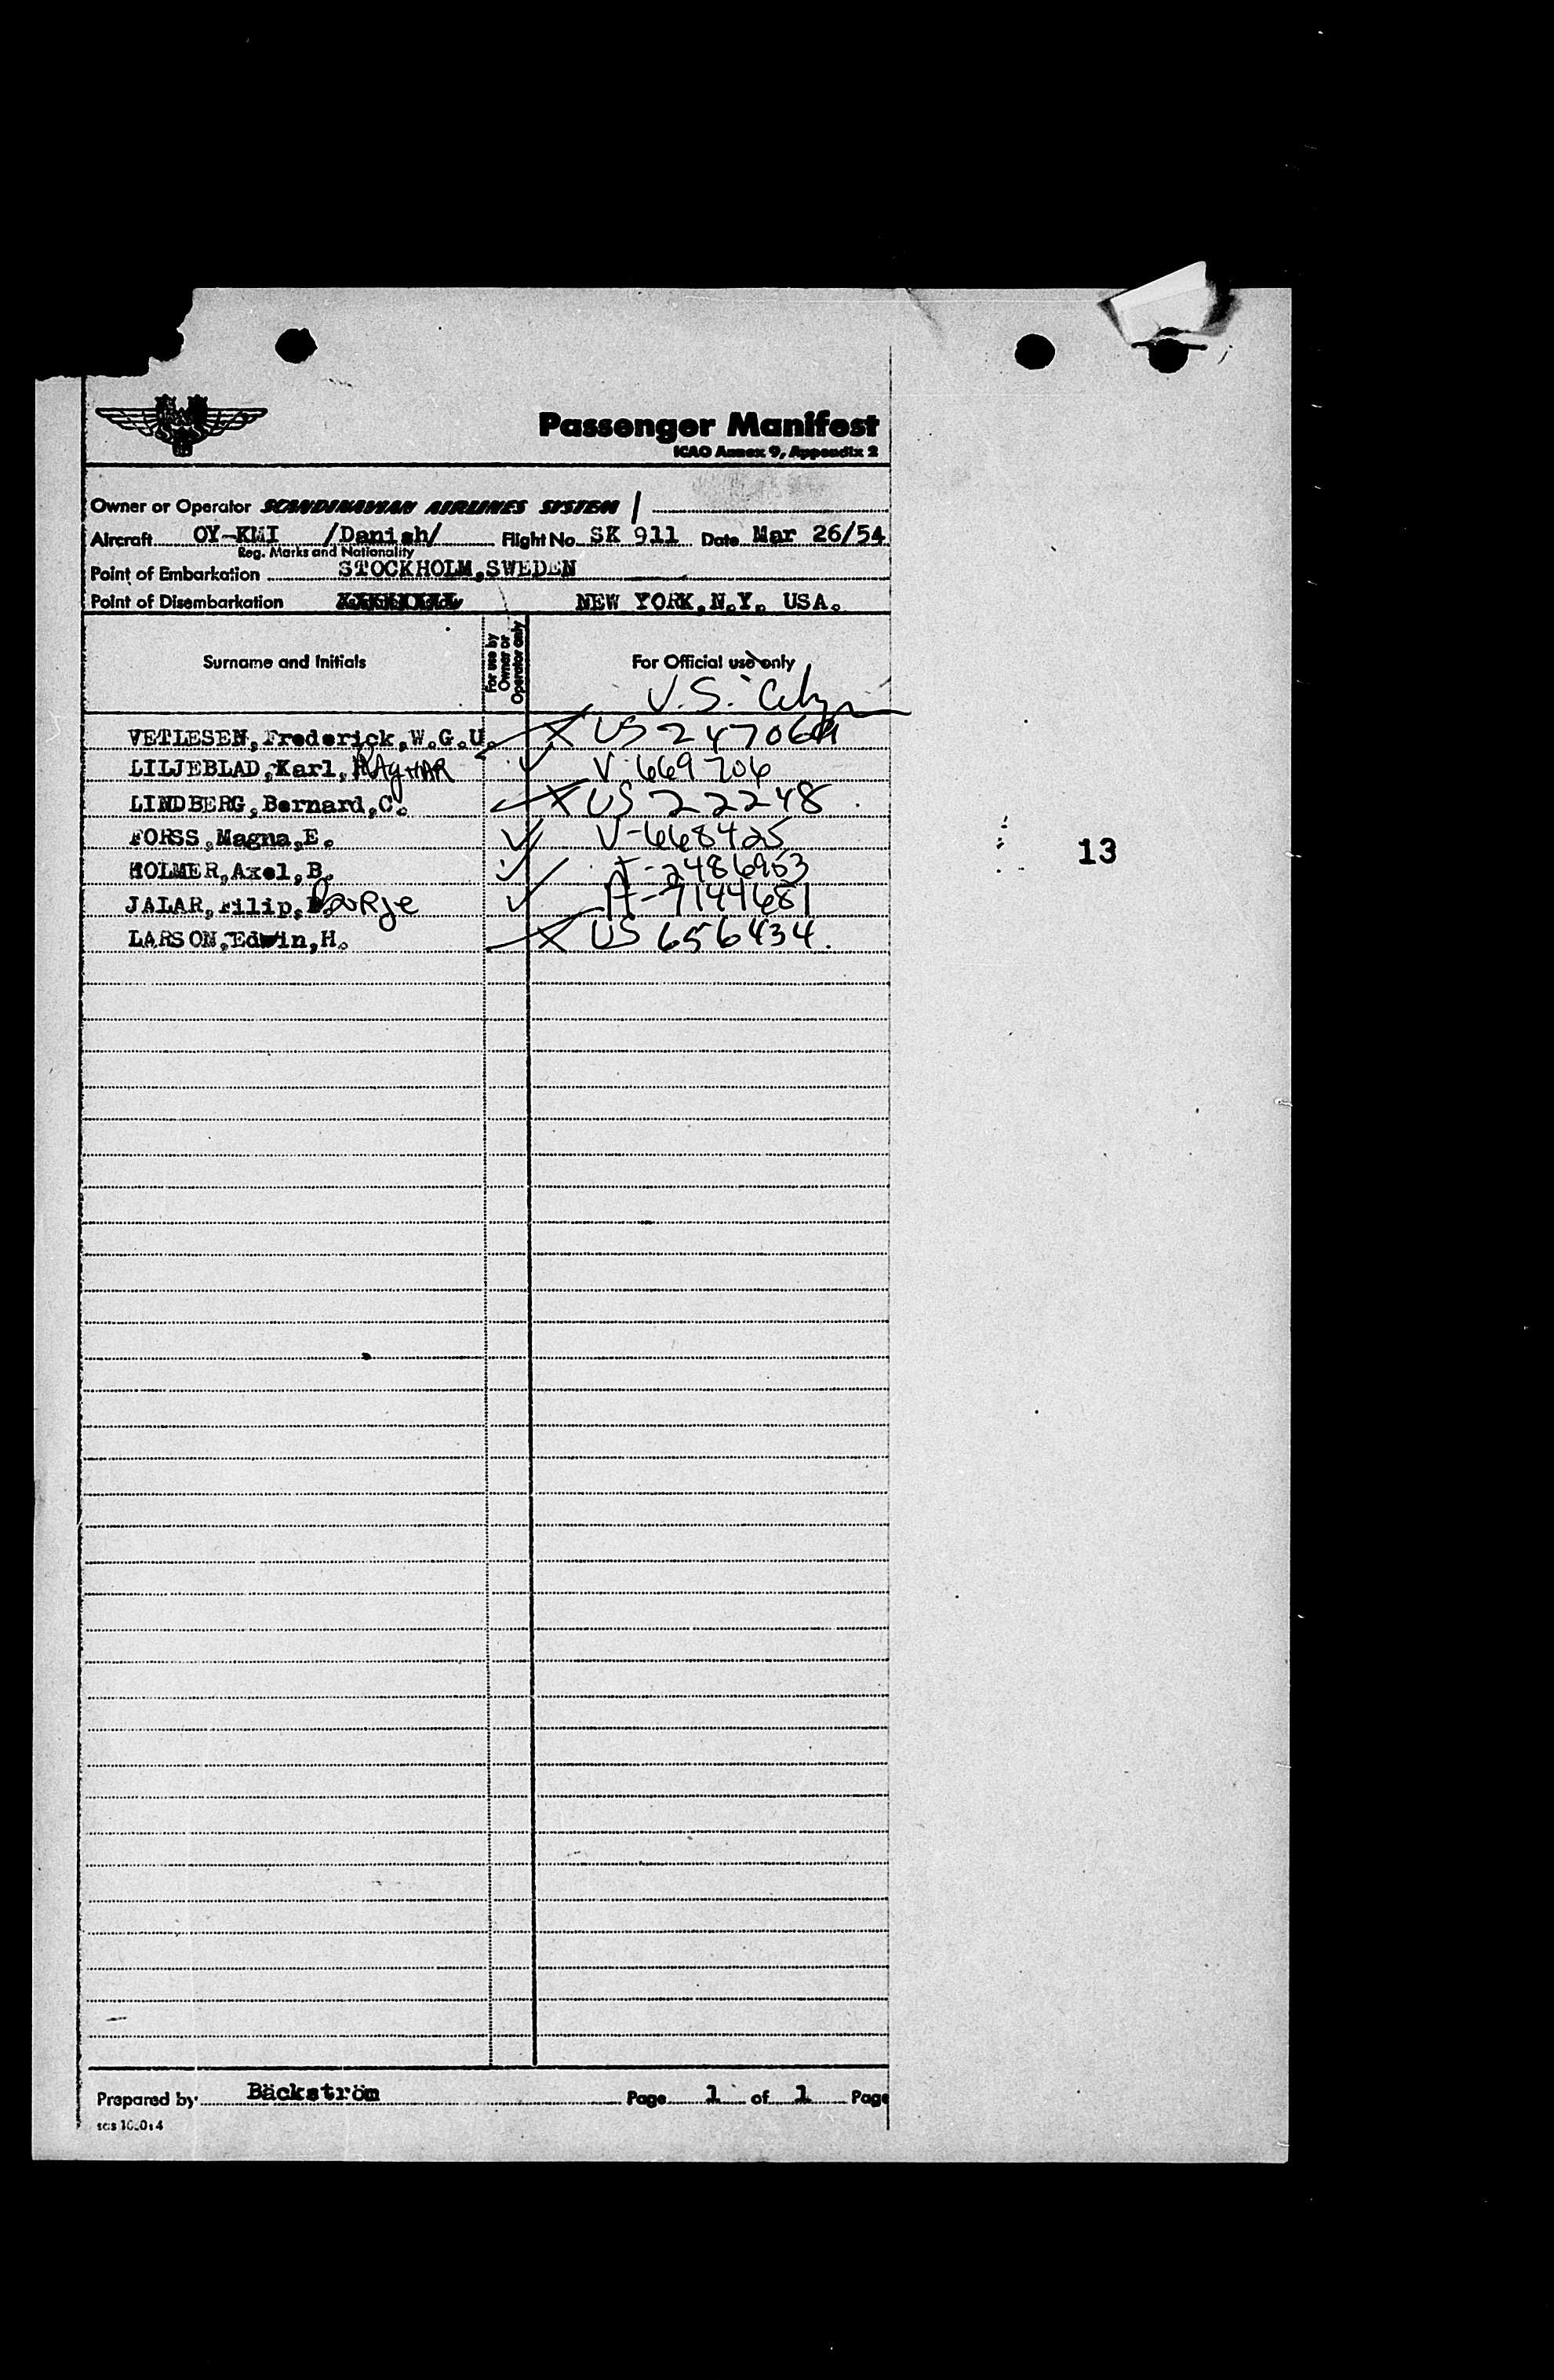 Passenger Manifest
ICAO Annex 9, Appendix 2
Owner or Operator SCANDINAVIAN AIRLINES SYSTEM
Aircraft OY-KMI /Danish/ Flight No. SK 911 Date Mar 26/54
Reg. Marks and Nationality
Point of Embarkation STOCKHOLM,SWEDEN
Point of Disembarkation NEW YORK,N.Y. USA.
Surname and Initials For use by Owner or Operator only For Official use only
U.S.
VETLESEN,Frederick,W.G.U. X US 247064
LILJEBLAD,Karl,RAgnAR V-669706
LINDBERG,Bernard,C. X US 22248
FORSS,Magna,E. V-668425
HOLMER,Axel,B. 2486953
JALAR,Filip,BorRje A-7144681
LARSON,Edwin,H. X US 656434.
13
Prepared by Bäckström Page 1 of 1 Page